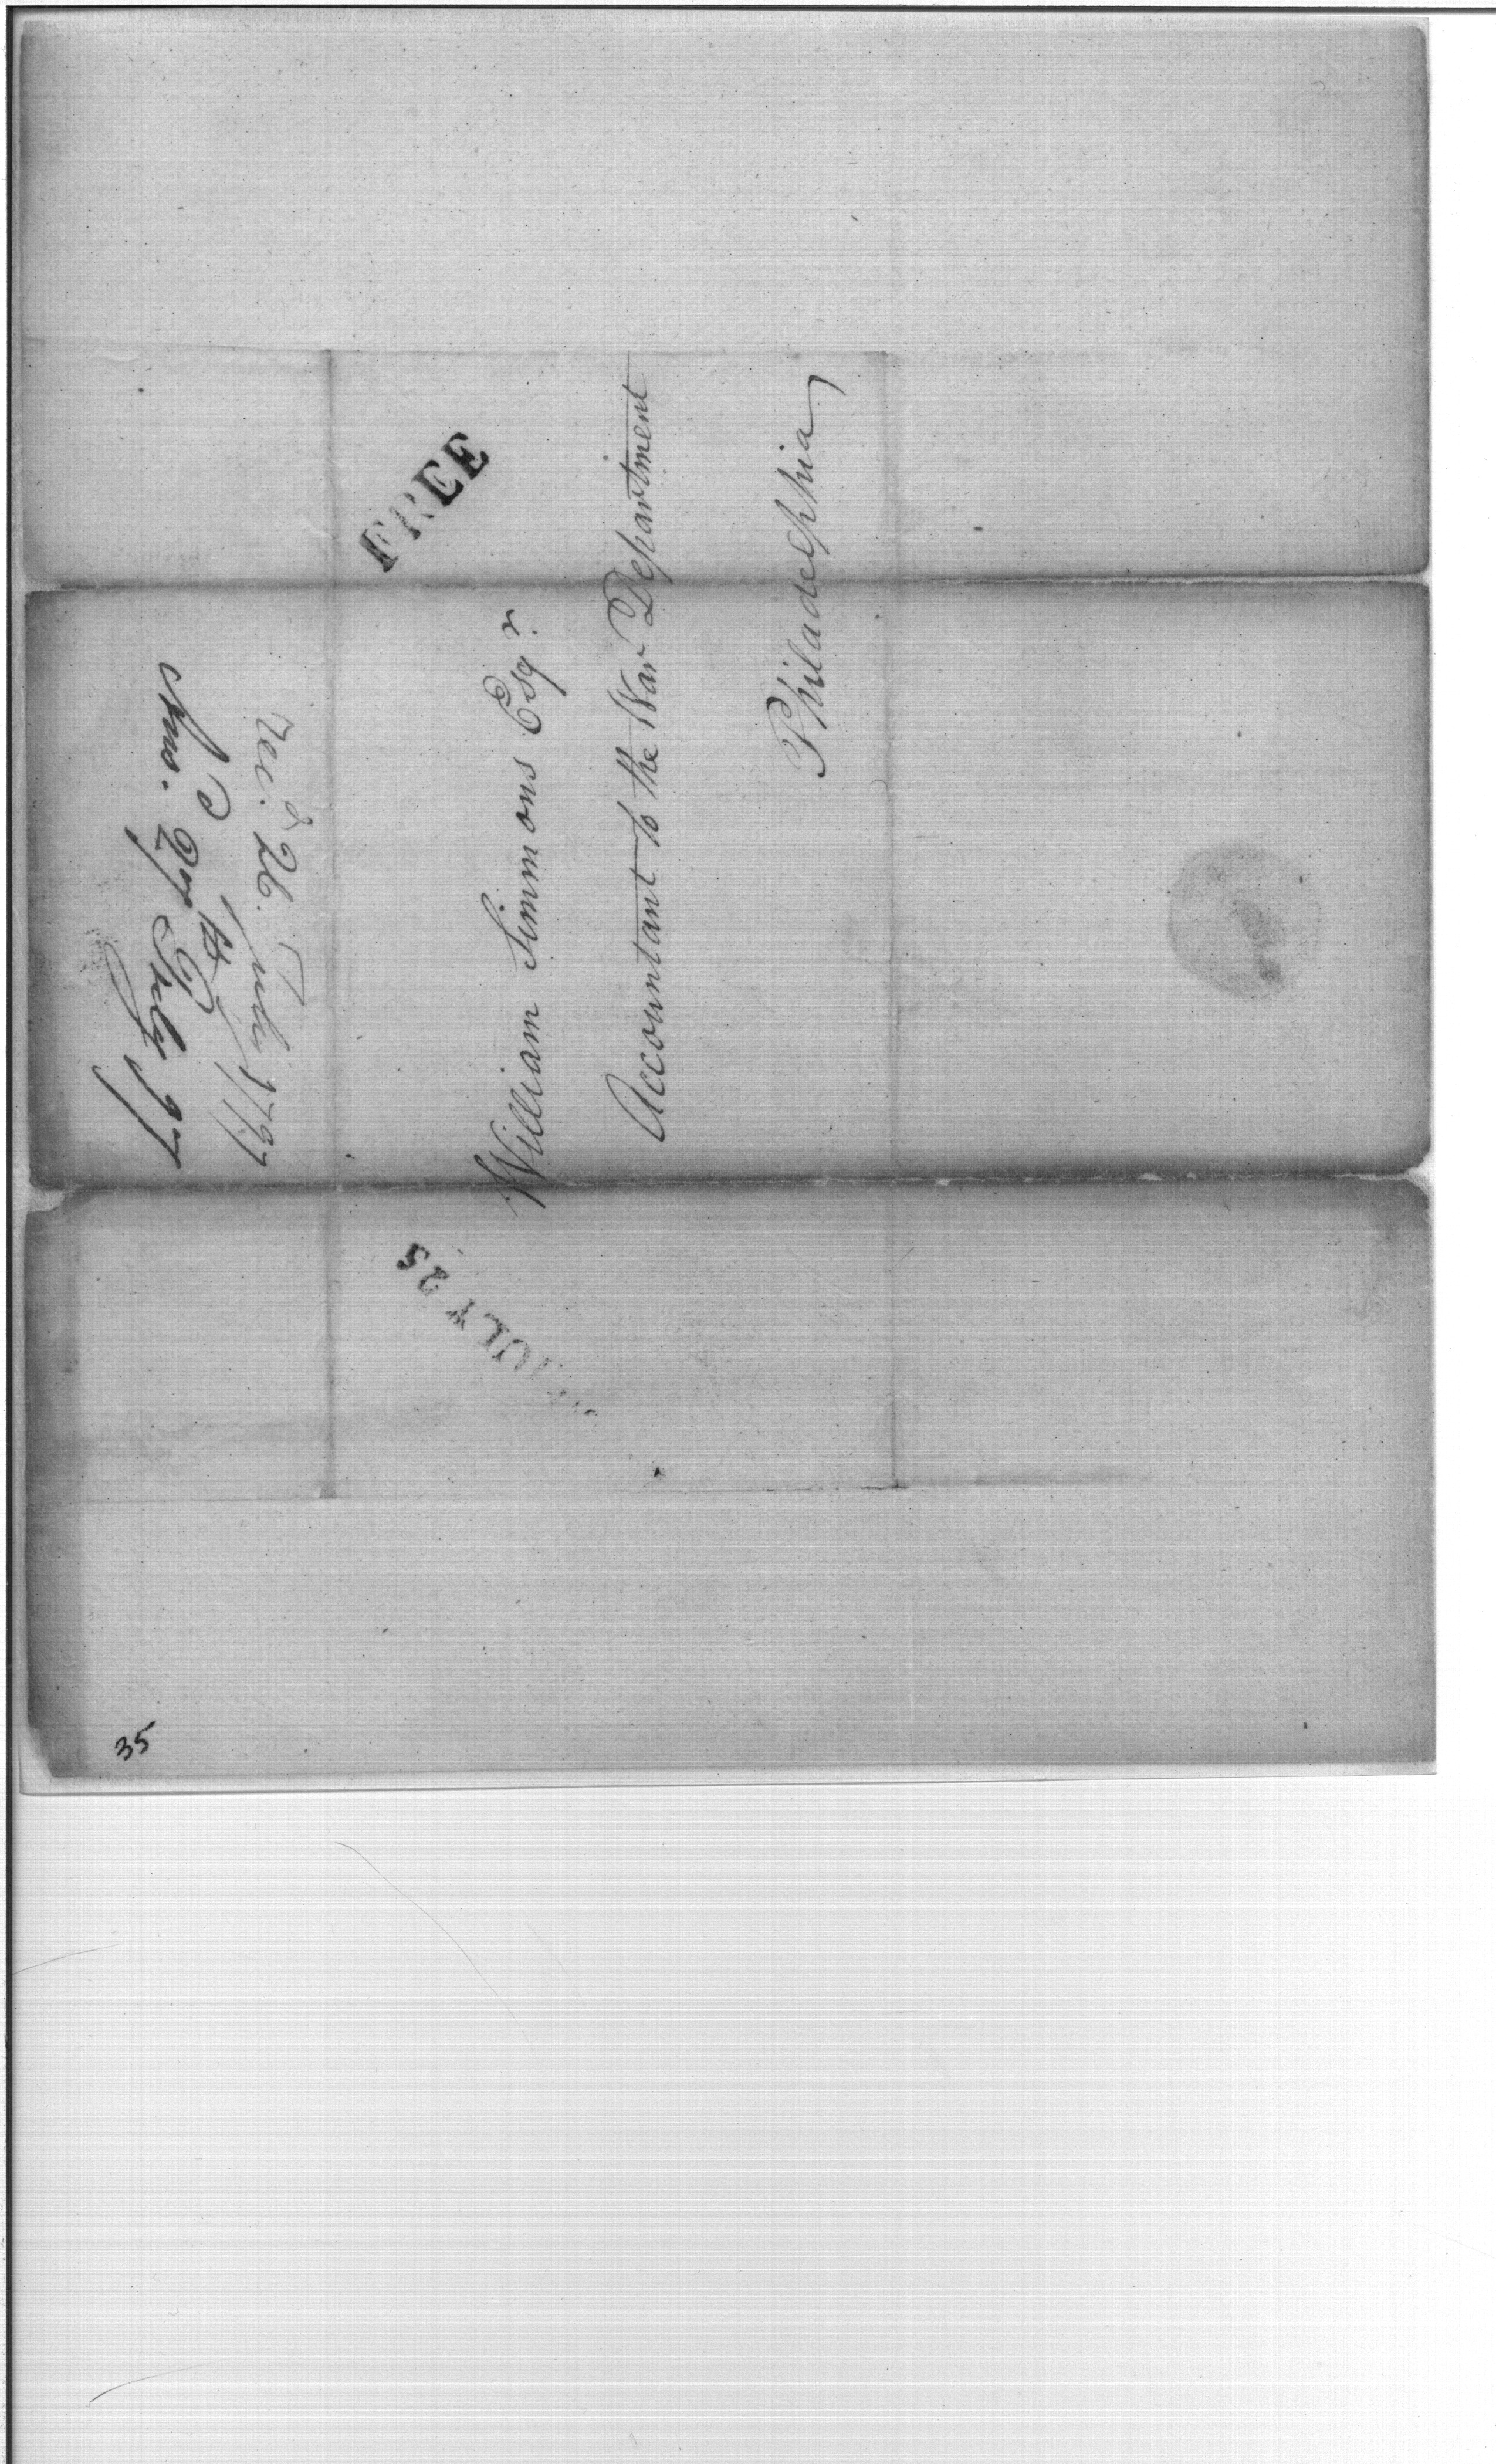 FREE
William Simmons Esqr.
Accountant to the War Department
Philadelphia
JULY 25
Recd. 26. July 1797
Ans. 27 July 97
35